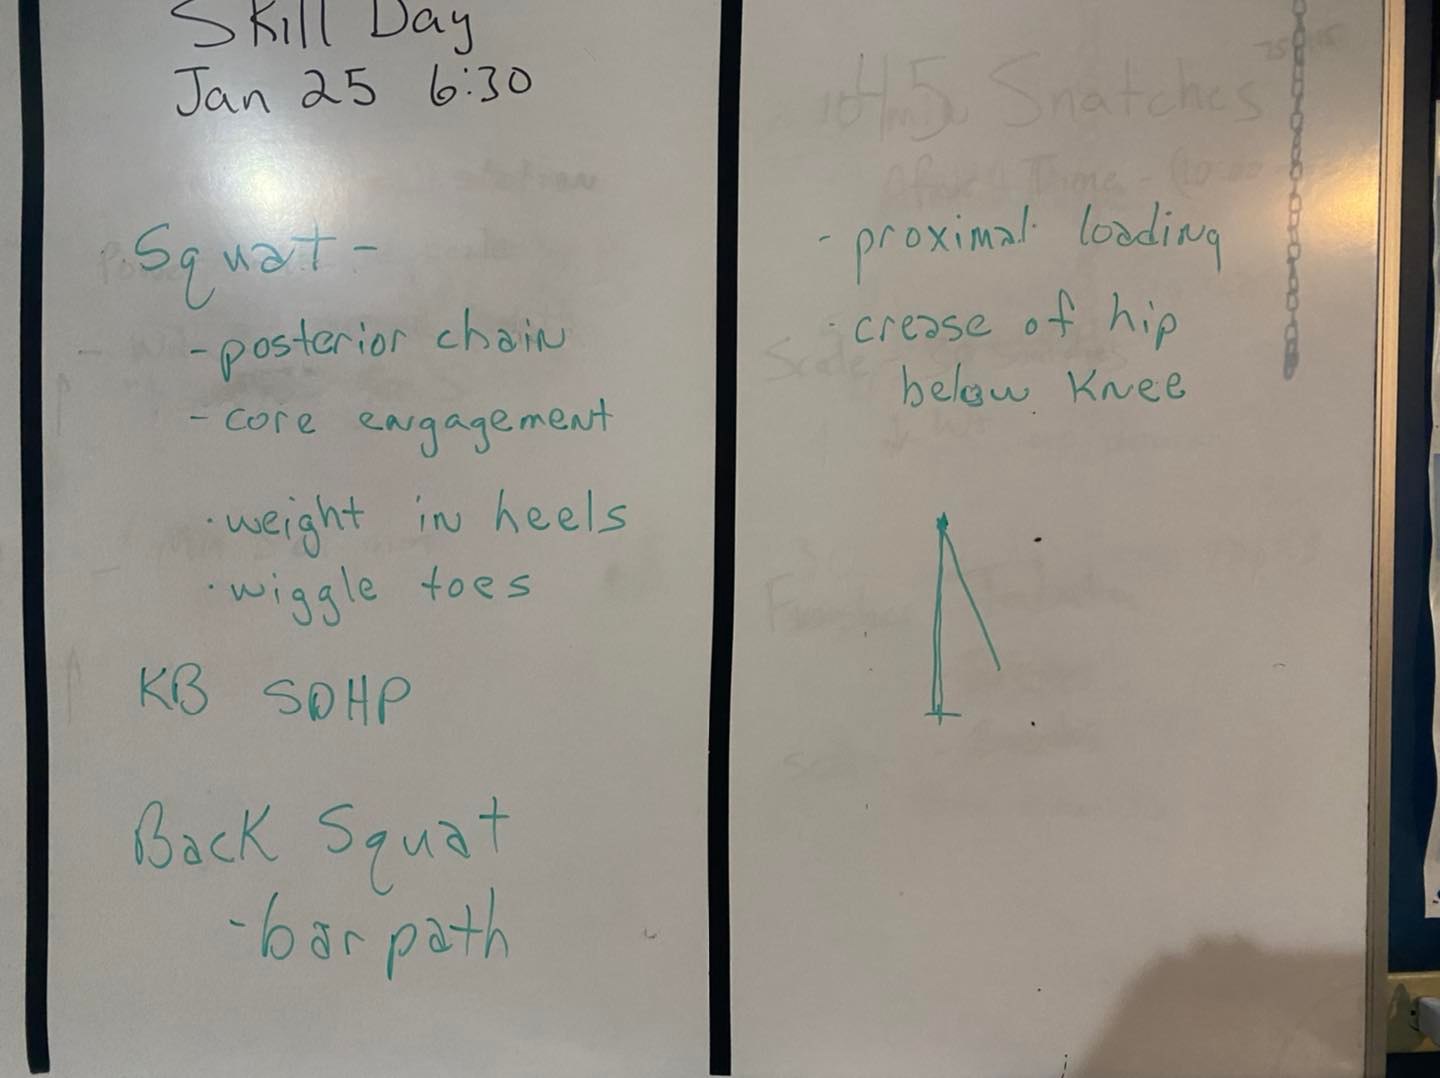 Skill Day
Jan 25 6:30
Squat -
- posterior chain
- core engagement
· weight in heels
· wiggle toes
KB SDHP
Back Squat
- bar path
45 Snatches
- proximal loading
· crease of hip
below Knee
Scale